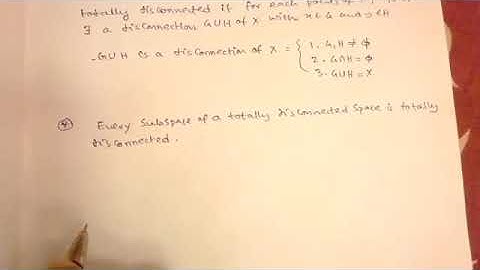 totally disconnected if for each points of
∃ a disconnection G∪H of X with x∈G and y∈H
. G∪H is a disconnection of X = { 1. G, H ≠ ϕ
2. G∩H = ϕ
3. G∪H = X
④ Every subspace of a totally disconnected space is totally
disconnected.